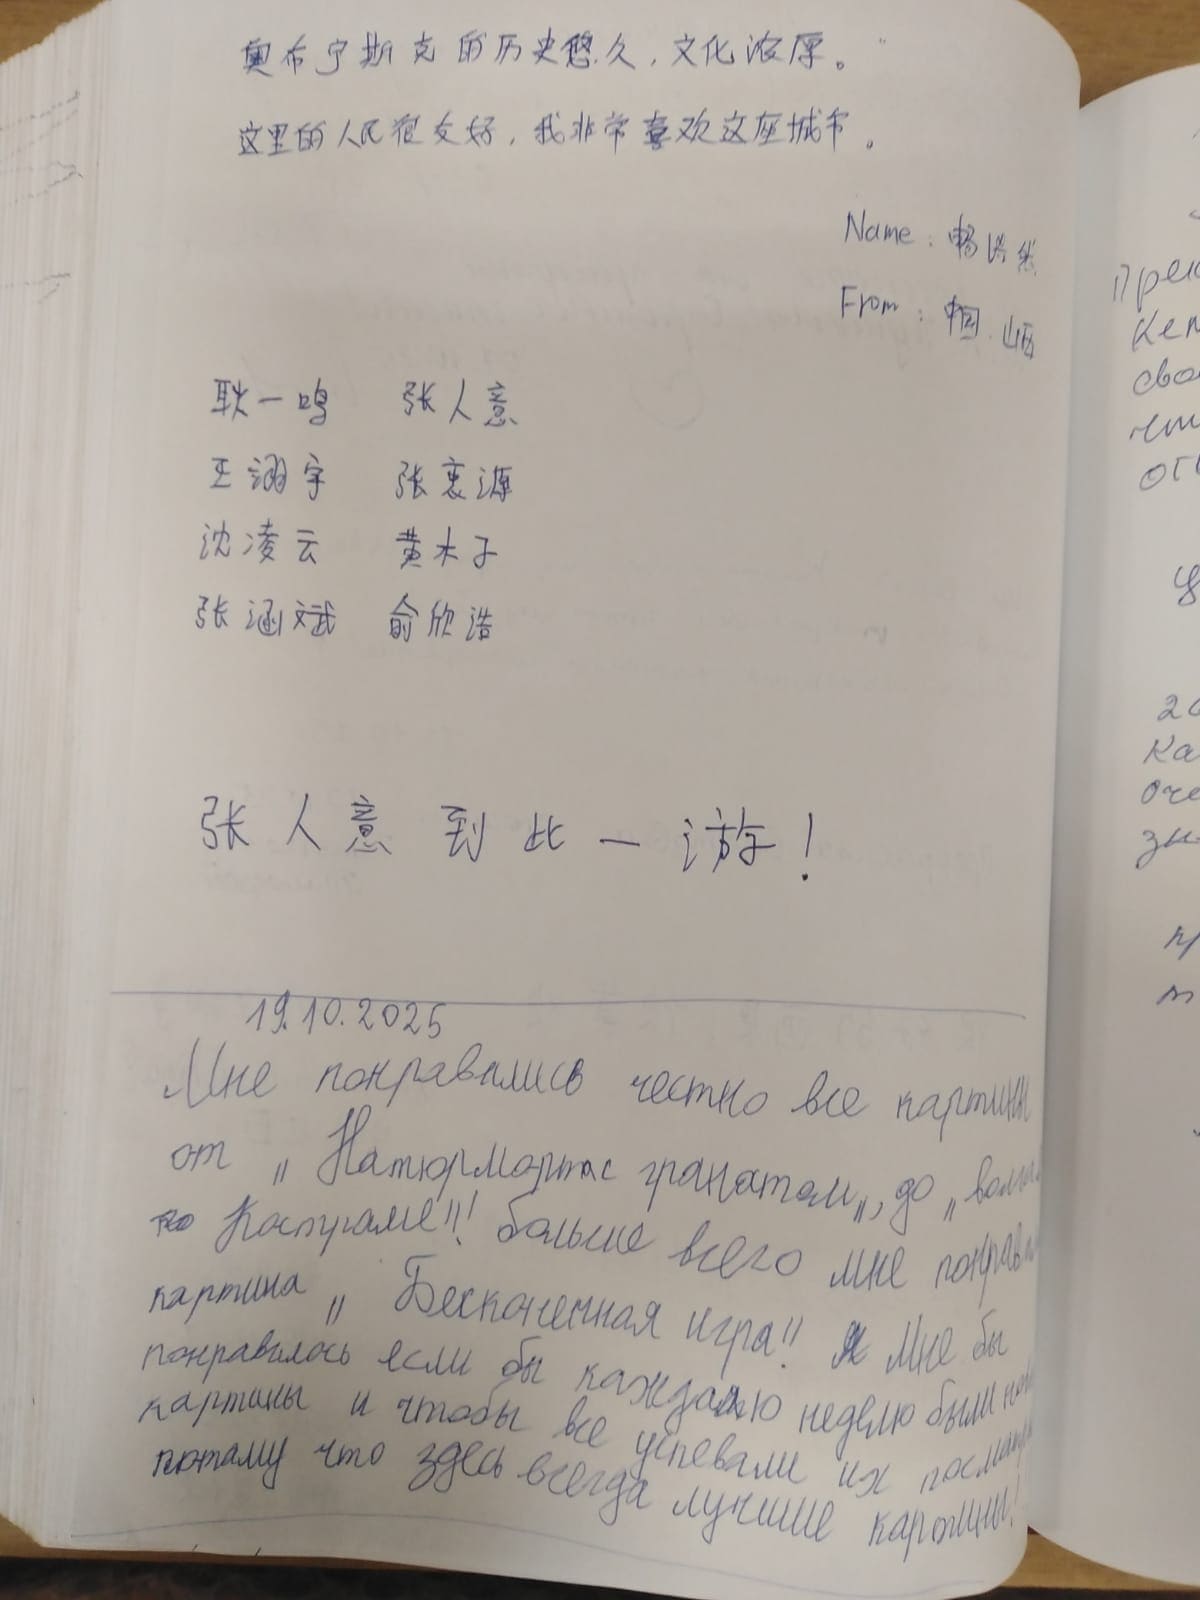 奥布宁斯克的历史悠久，文化浓厚。
这里的人民很友好，我非常喜欢这座城市。
Name: 畅洪然
From: 中国 山西
耿一鸣 张人意
王翊宇 张寰源
沈凌云 黄木子
张涵斌 俞欣浩
张人意到此一游！
19.10.2025
Мне понравились честно все картины
от „Натюрморта с гранатом„, до „
Костроме"! больше всего мне
картина „Бесконечная игра"! Мне бы
понравилось если бы каждую неделю были
картины и чтобы все успевали их
потому что здесь всегда лучшие картины!
Прек
Кеп
сво
что
ог
20
Ка
оче
зн